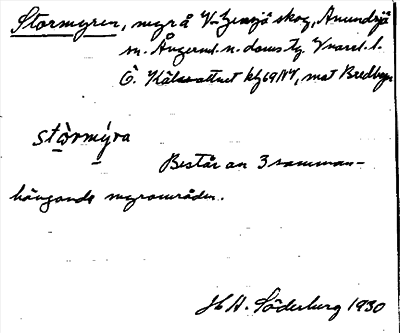 Stormyren, myr å V-Gensjö skog, Anundsjö
sn. Ångerml. n. doms. tg. V svarel. l.
Ö. Kälasattnet kbl 69 NV, mot Bredbyn
stòrmýra
Består av 3 samman-
hängande myrområden.
H. A. Söderberg 1930